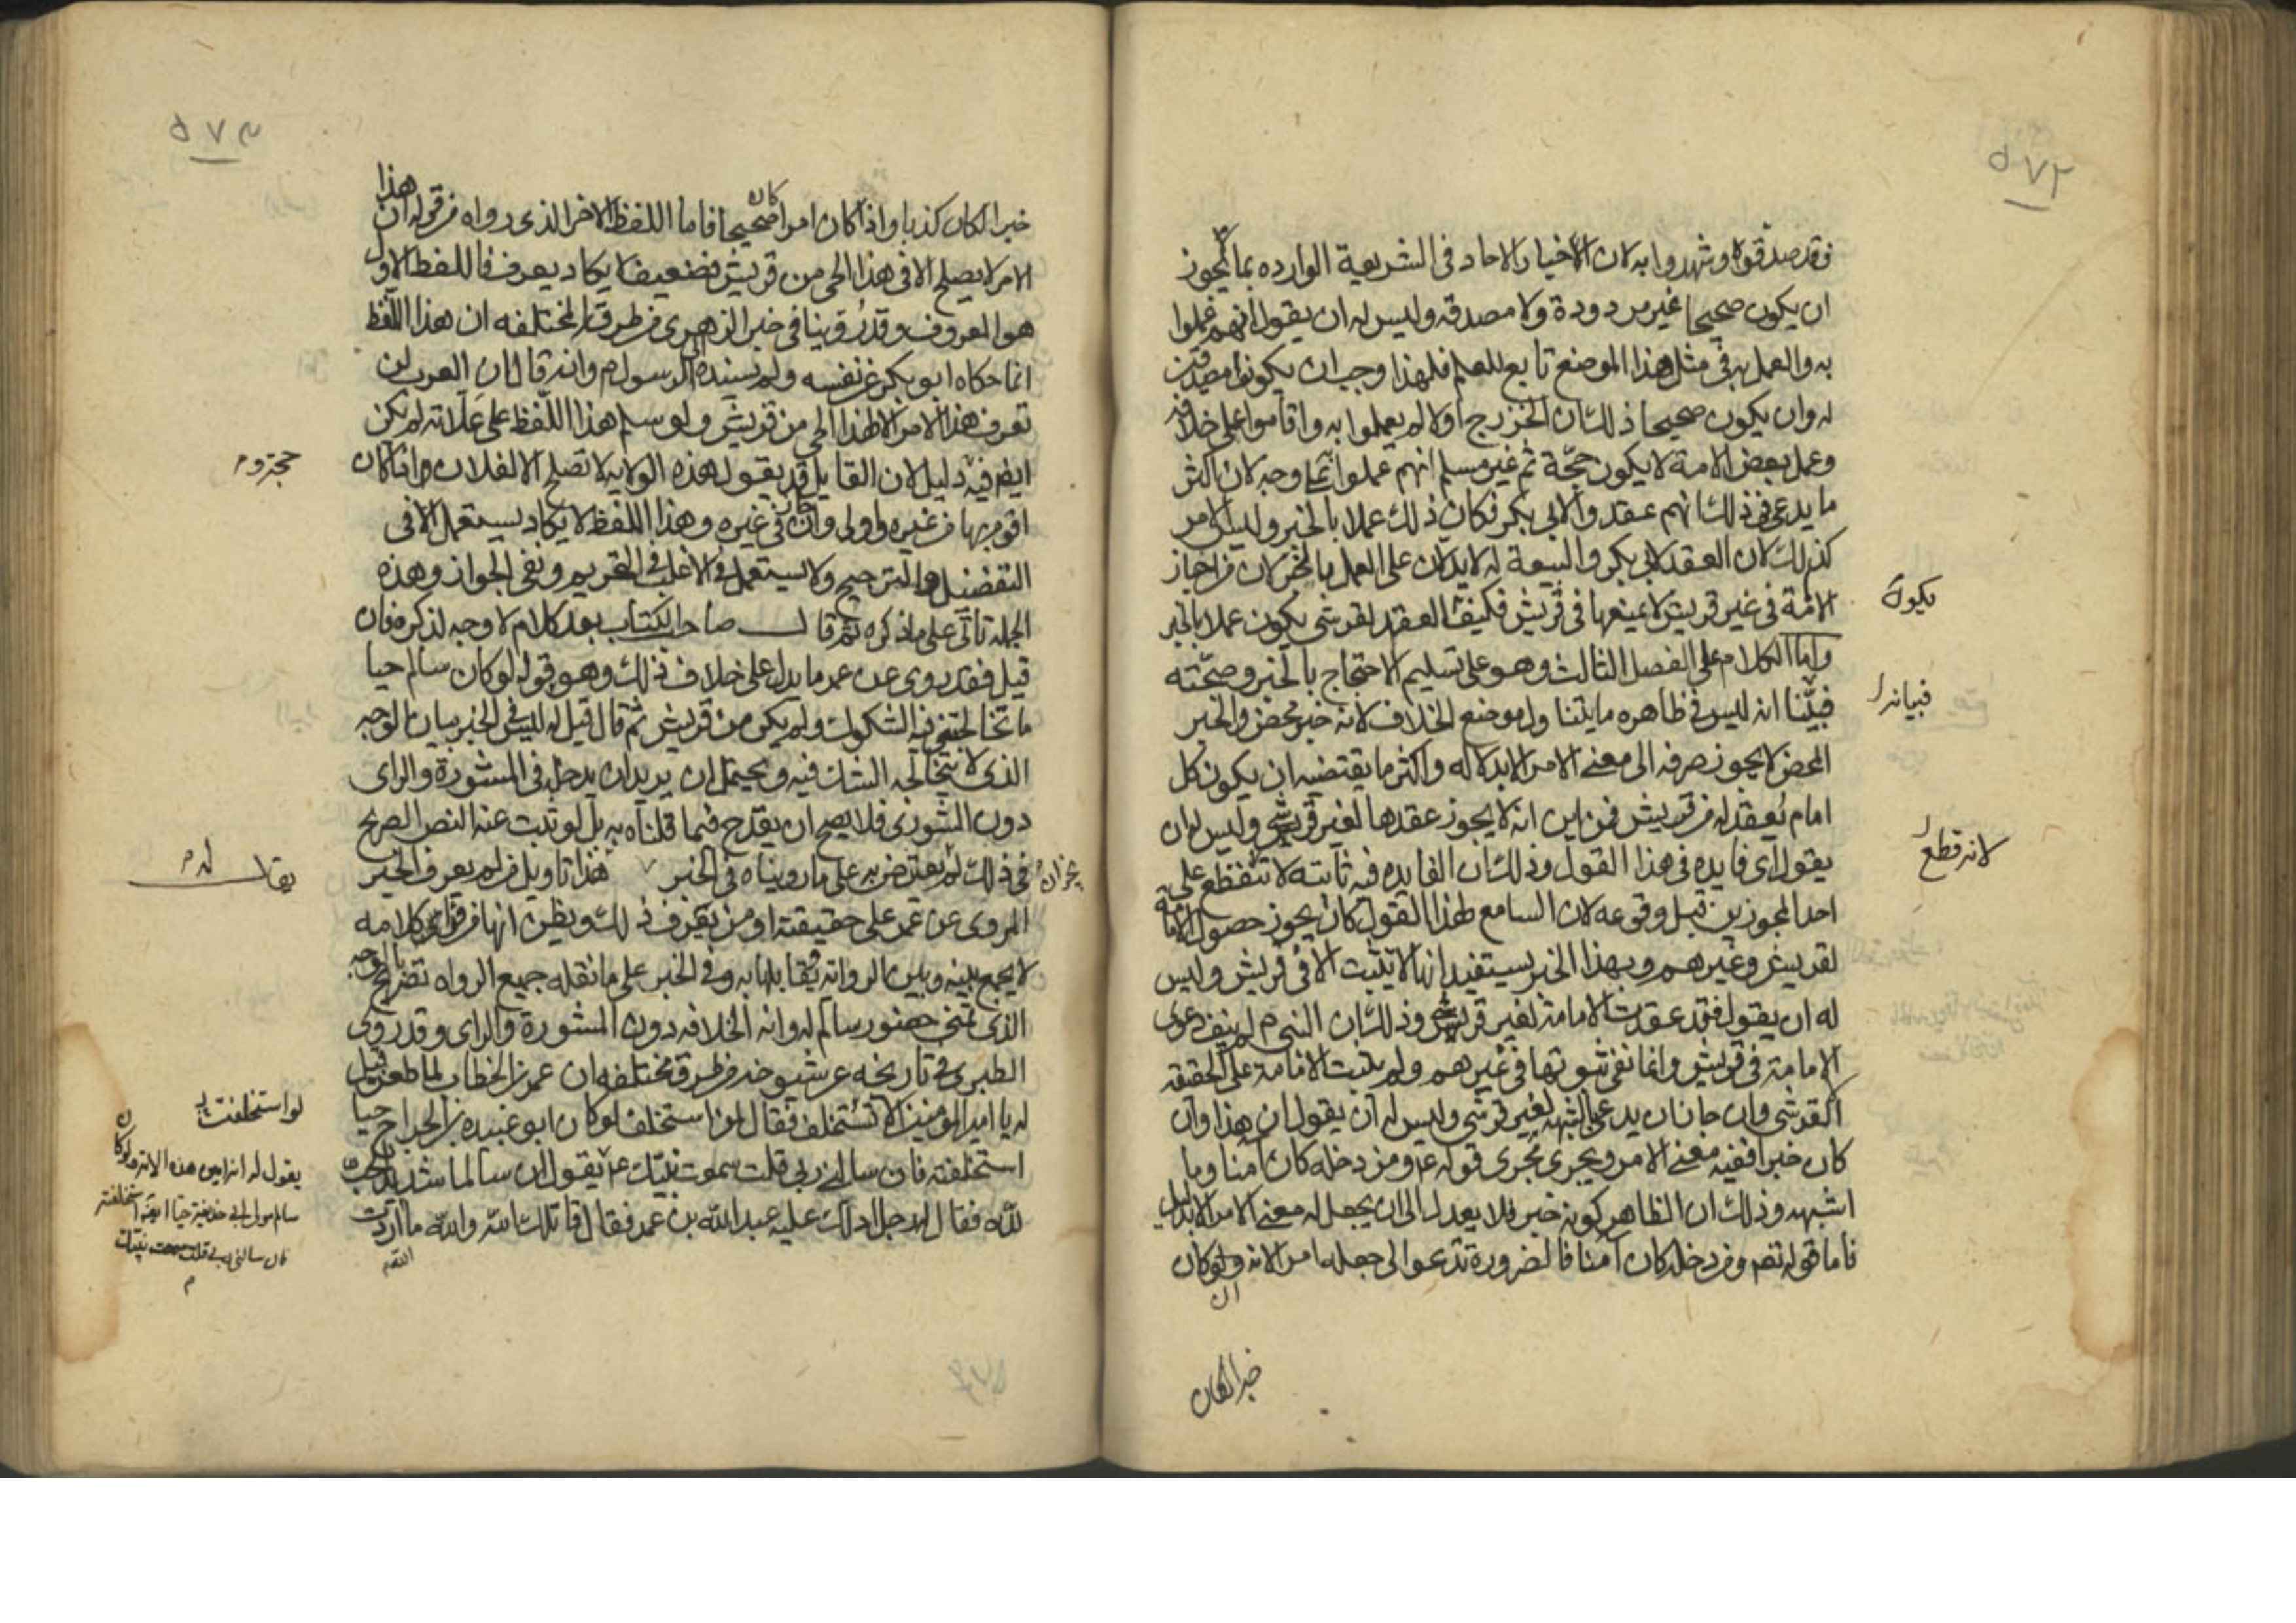 ٥٧٢
فقد صدقوه وشهدوا به لان الاخبار الاحاد في الشريعة الوارده بما يجوز
ان يكون صحيحا غير مردودة ولا مصدقه وليس له ان يقول انهم عملوا
به والعمل به في مثل هذا الموضع تابع للعلم فلهذا وجب ان يكونوا مصدقين
له وان يكون صحيحا ذلك ان الخزرج اولا لم يعملوا به واقاموا على خلافه
وعمل بعض الامة لا يكون حجة ثم غير مسلم انهم عملوا وجه لان اكثر
ما يدعى في ذلك انهم عقدوا لابي بكر فكان ذلك عملا بالخبر وليس الامر
كذلك لان العقد لابي بكر والبيعة له لا يدلان على العمل بالخبر لان من اجاز
الامة في غير قريش لا يمنعها في قريش فكيف العقد لقرشي يكون عملا بالخبر
يكون
واما الكلام على الفصل الثالث وهو على تسليم الاحتجاج بالخبر وصحته
فبينا انه ليس في ظاهره ما يتناول موضع الخلاف لانه خبر محض والخبر
فبيانه
المحض لا يجوز صرفه الى معنى الامر الا بدلاله واكثر ما يقتضيه ان يكون كل
امام يعقد له من قريش فمن اين انه لا يجوز عقدها لغير قريشي وليس له ان
يقول اي فايده في هذا القول وذلك ان الفايده فيه ثابته لا تنقطع على
لانه قطع
احد المجوزين قبل وقوعه لان السامع لهذا القول كان يجوز حصول الامامة
لقريش وغيرهم وبهذا الخبر يستفيد انها لا تثبت الا في قريش وليس
له ان يقول فقد عقدت الامامة لغير قريشي وذلك ان النبي م لم ينف دعوى
الامامة في قريش وانما نفى ثبوتها في غيرهم ولم يثبت الامامة على الحقيقه
القرشي وان جاز ان يدعي لشبهه لغير قرشي وليس له ان يقول ان هذا وان
كان خبرا ففيه معنى الامر ويجري مجرى قوله عز ومن دخله كان امنا وما
اشبهه وذلك ان الظاهر كونه خبر فلا يعدل الى ان يجعل له معنى الامر الا بدليل
فاما قوله تعم ومن دخله كان آمنا فالضرورة تدعوا الى جعله امر الانه ولو كان
خبرا لكان
٥٧٣
خبرا لكان كذبا واذا كان امرا كان صحيحا فاما اللفظ الاخر الذي رواه من قوله ان هذا
الامر لا يصلح الا في هذا الحي من قريش فضعيف لا يكاد يعرف فاللفظ الاول
هو المعروف وقد روينا في خبر الزهري من طرق المختلفه ان هذا اللفظ
انما حكاه ابو بكر عن نفسه ولم يسنده الى الرسول م وانه قال ان العرب لن
تعرف هذا الامر الا لهذا الحي من قريش ولو سلم هذا اللفظ على علاته لم يكن
ايضا فيه دليل لان القايل قد يقول هذه الولايه لا تصلح الا لفلان وانما كان
اقوم بها من غيره واولى وان في غيره وهذا اللفظ لا يكاد يستعمل الا في
التفضيل والترجيح ولا يستعمل في الاغلب في التحريم ونفي الجواز وهذه
الجمله تاتي على ما ذكره ثم قال صاحب الكتاب بعد كلام لا وجه لذكره فان
قيل فقد روى عن عمر ما يدل على خلاف ذلك وهو قوله لو كان سالم حيا
ما تخالجتني فيه الشكوك ولم يكن من قريش ثم قال قيل له ليس في الخبر بيان الوجه
الذي لا يتخالجه الشك فيه ويحتمل ان يريد ان يدخله في المشورة والراى
دون الشورى فلا يصح ان يقدح فيما قلناه به بل لو ثبت عنه النص الصريح
في ذلك لم يعترض به على ما رويناه في الخبر هذا تاويل من لم يعرف الخبر
يقال له م
المروى عن عمر على حقيقته او من يعرف ذلك ويظن انها من قراى كلامه
لا يجمع بينه وبين الروايه يقابلها به وفي الخبر على ما نقله جميع الرواه تصريح بالوجه
الذي تمنى حضور سالم له وانه الخلافه دون المشورة والراى وقد روى
الطبري في تاريخه عن شيوخه من طرق مختلفه ان عمر بن الخطاب لما طعن قيل
له يا امير المؤمنين لا تستخلف فقال لمن استخلف لو كان ابو عبيده بن الجراح حيا
لو استخلفت
استخلفته فان سالني ربي قلت سمعت نبيك ع م يقول ان سالما شديد الحب
يقول له انه امين هذه الامه ولو كان
سالم مولى ابي حذيفة حيا استخلفته
فان سالني ربي قلت سمعت نبيك
لله فقال له رجل ادلك عليه عبد الله بن عمر فقال قاتلك الله والله ما اردت
الله م